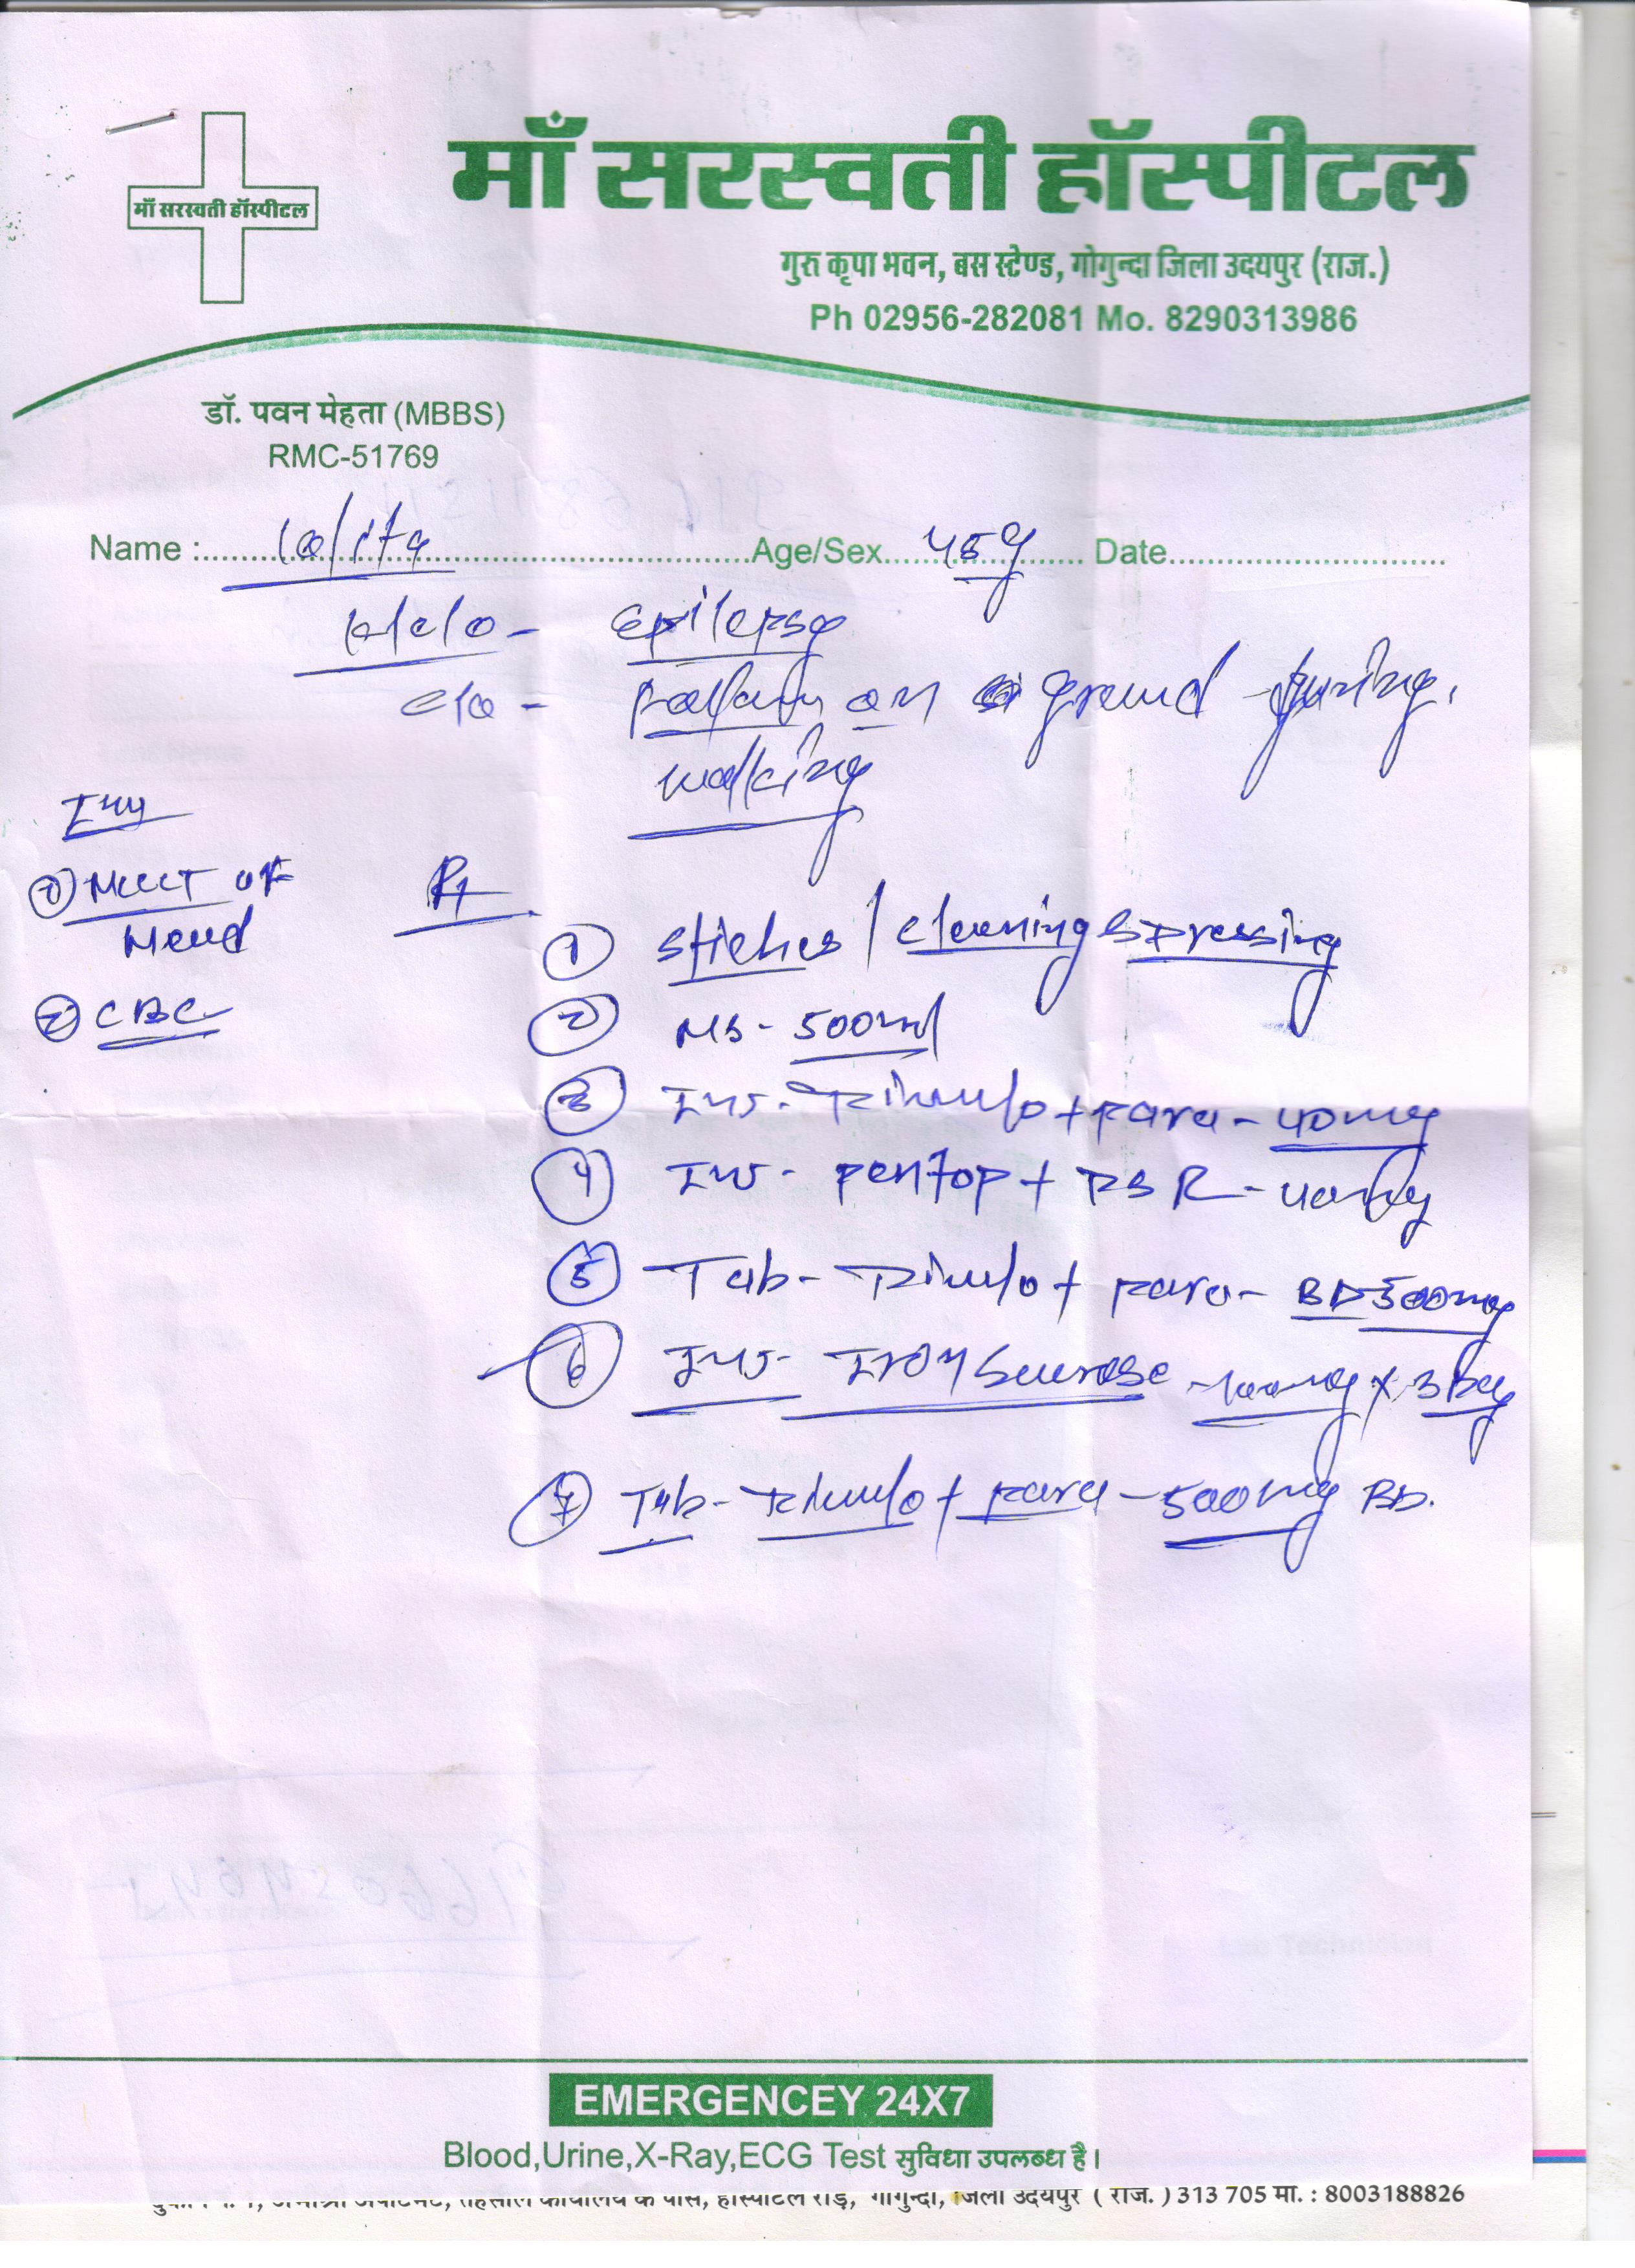 माँ सरस्वती हॉस्पीटल
माँ सरस्वती हॉस्पीटल
गुरु कृपा भवन, बस स्टेण्ड, गोगुन्दा जिला उदयपुर (राज.)
Ph 02956-282081 Mo. 8290313986
डॉ. पवन मेहता (MBBS)
RMC-51769
Name : lalita Age/Sex 45y Date
H/c/o - Epilepsy
c/o - on ground during
walking
Inv
① NCCT OF
Head
② CBC
Rx
① Stiches / cleaning & Dressing
② NS - 500ml
③ Inv - + para - 40mg
④ Inv - pentop + DSR - 40mg
⑤ Tab - + para - BD 500mg
⑥ Inv - Iron Sucrose - 100mg x 3 Day
⑦ Tab - + para - 500mg BD.
EMERGENCEY 24X7
Blood,Urine,X-Ray,ECG Test सुविधा उपलब्ध है।
तहसील कार्यालय के पास, हॉस्पीटल रोड़, गोगुन्दा, जिला उदयपुर ( राज. ) 313 705 मो. : 8003188826